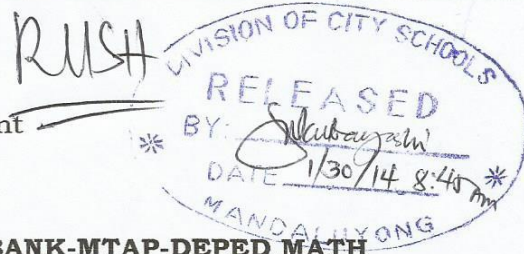 RUSH
DIVISION OF CITY SCHOOLS
RELEASED
nt
BY:
DATE 1/30/14 8:45 Am
MANDALUYONG
BANK-MTAP-DEPED MATH